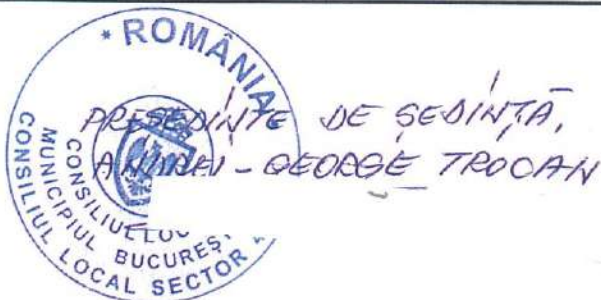 * ROMÂNIA
CONSILIUL LOCAL SECTOR
MUNICIPIUL BUCUREȘ
CONSILIUL
PREȘEDINTE DE ȘEDINȚĂ,
ANDREI-GEORGE TROCAN